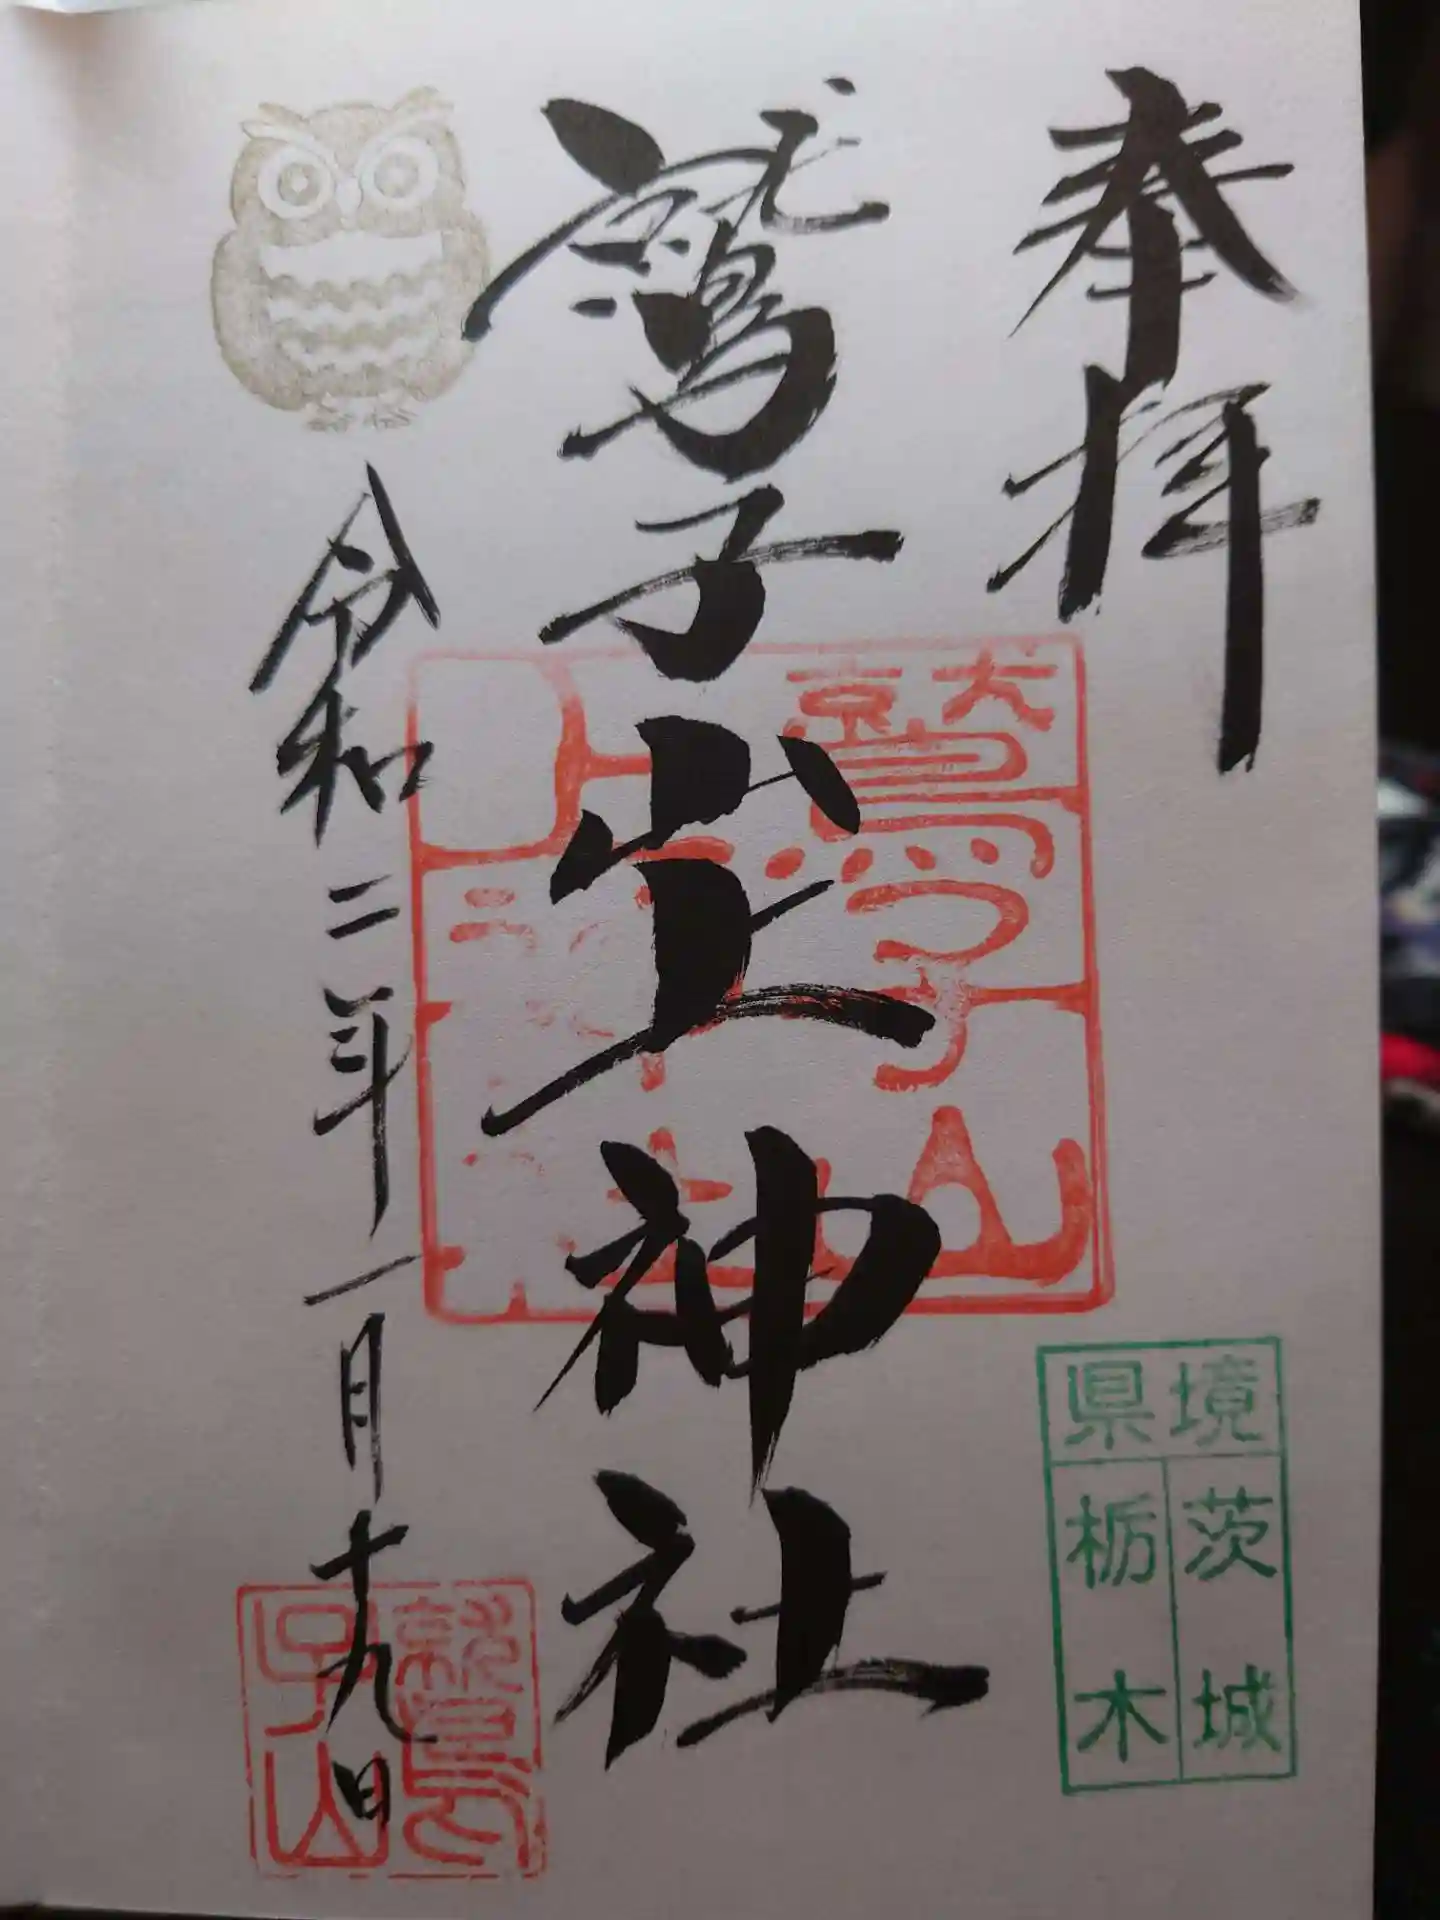 奉拝
鷲子山上神社
令和二年一月十九日
鷲子山
県境
茨城
栃木
鷲子山